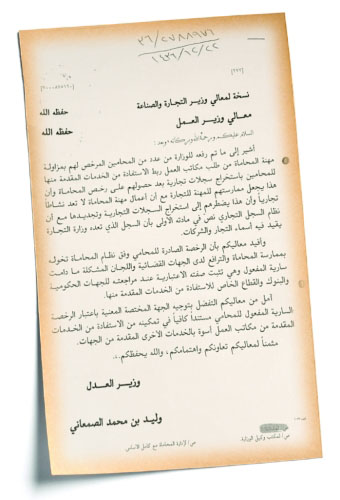 ٣٦/٢٧٨٨٩٧٦
١٤٣٦/١٢/٢٢
[٢٢٢]
نسخة لمعالي وزير التجارة والصناعة
حفظه الله
معالي وزير العمل
حفظه الله
السلام عليكم ورحمة الله وبركاته وبعد:
أشير إلى ما تم رفعه للوزارة من عدد من المحامين المرخص لهم بمزاولة
مهنة المحاماة من طلب مكاتب العمل ربط الاستفادة من الخدمات المقدمة منها
للمحامين باستخراج سجلات تجارية بعد حصولهم على رخص المحاماة وأن
هذا يجعل ممارستهم للمهنة للتجارة مع أن أعمال مهنة المحاماة لا تعد نشاطاً
تجارياً وأن هذا يضطرهم إلى استخراج السجلات التجارية وتجديدها مع أن
نظام السجل التجاري نص في مادته الأولى بأن السجل الذي تعده وزارة التجارة
يقيد فيه أسماء التجار والشركات.
وأفيد معاليكم بأن الرخصة الصادرة للمحامي وفق نظام المحاماة تخوله
بممارسة المحاماة والترافع لدى الجهات القضائية واللجان المشكلة ما دامت
سارية المفعول وهي تثبت صفته الاعتبارية عند مراجعته للجهات الحكومية
والبنوك والقطاع الخاص للاستفادة من الخدمات المقدمة منها.
آمل من معاليكم التفضل بتوجيه الجهة المختصة المعنية باعتبار الرخصة
السارية المفعول للمحامي مستنداً كافياً في تمكينه من الاستفادة من الخدمات
المقدمة من مكاتب العمل أسوة بالخدمات الأخرى المقدمة من الجهات.
مثمناً لمعاليكم تعاونكم واهتمامكم، والله يحفظكم،،
وزير العدل
وليد بن محمد الصمعاني
ص/ لمكتب وكيل الوزارة
ص/ لإدارة المحاماة مع كامل الأساس